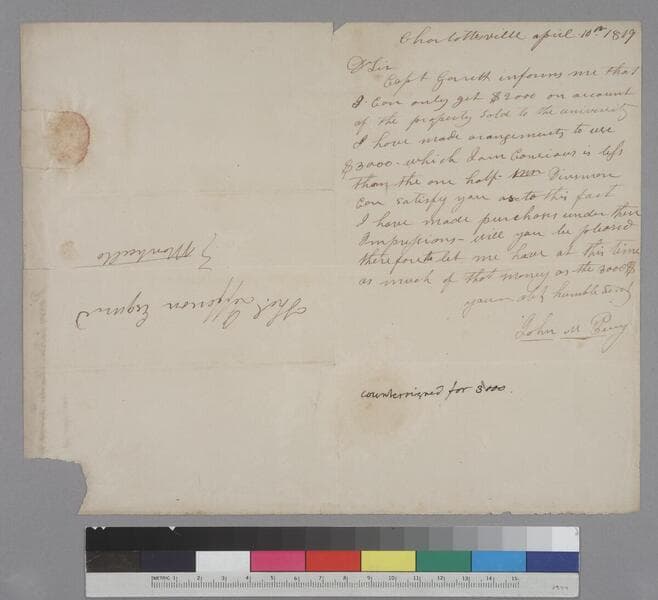 Charlottesville april 10th 1819
Dr Sir
Capt Garreth informs me that
I Can only get $2000 on account
of the property Sold to the university
I have made arangements to use
$3000 - which I am Concious is less
than the one half - Dinsmore
Can satisfy you as to this fact
I have made purchases under these
Impressions - will you be pleased
therefore to let me have at this time
as much of that money as the 3000$
your obt humble Servt
John M Perry
countersigned for 3000.
Thos Jefferson Esquire
Monticello
METRIC 1 2 3 4 5 6 7 8 9 10 11 12 13 14 15